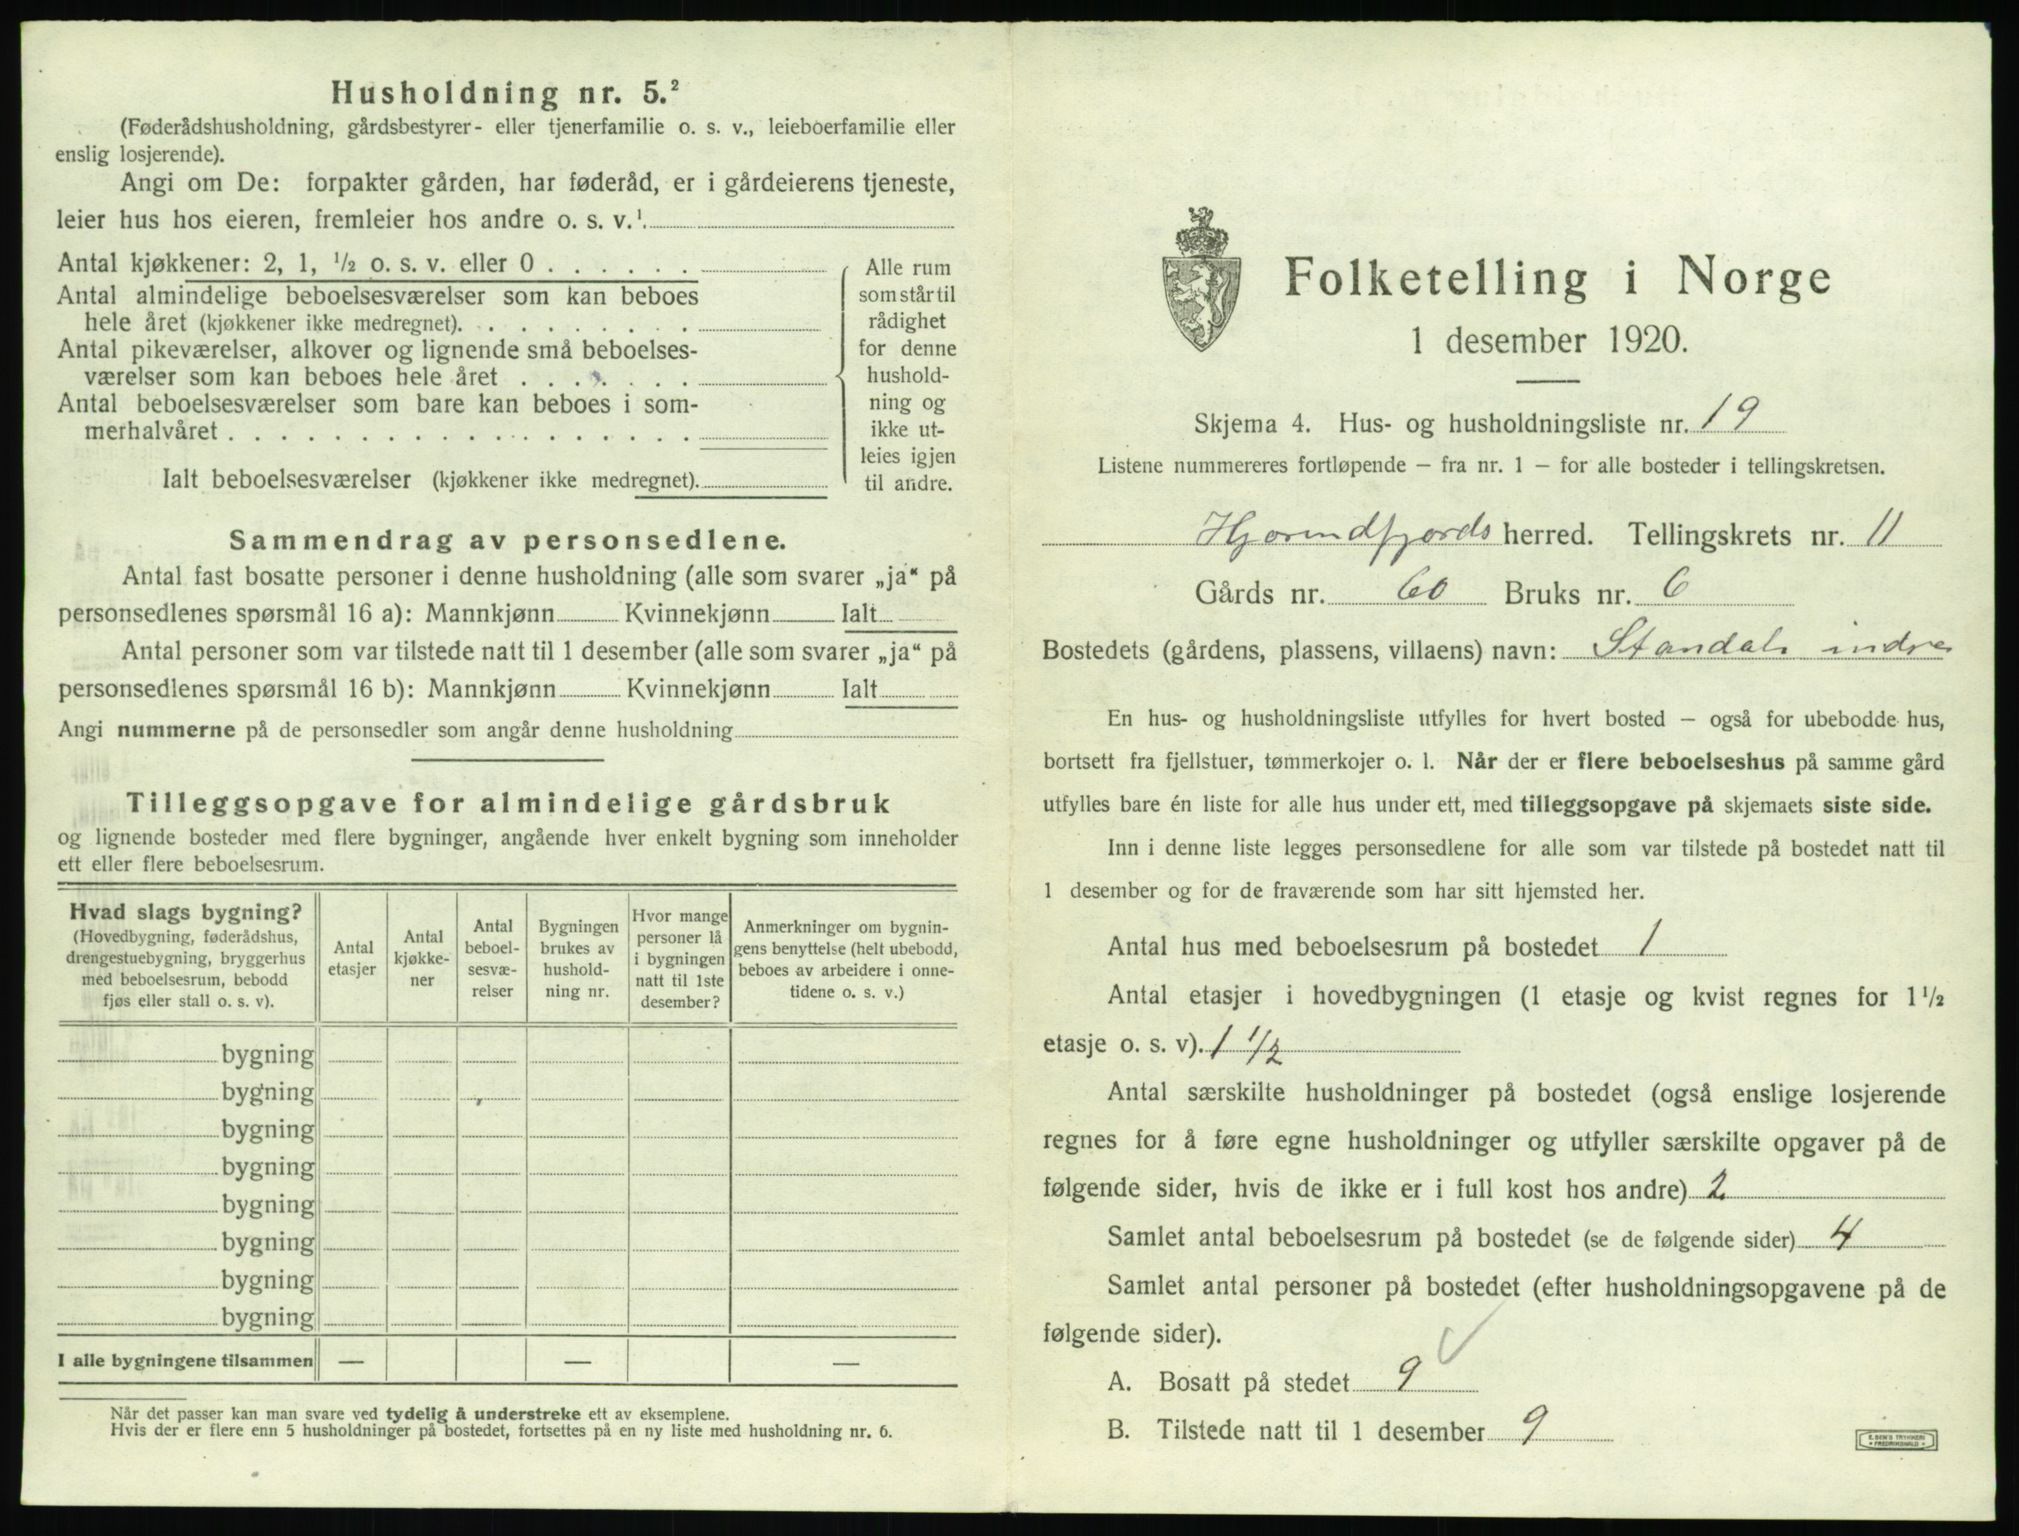 Husholdning nr. 5.²
(Føderådshusholdning, gårdsbestyrer- eller tjenerfamilie o. s. v., leieboerfamilie eller
enslig losjerende).
Angi om De: forpakter gården, har føderåd, er i gårdeierens tjeneste,
leier hus hos eieren, fremleier hos andre o. s. v.¹
Antal kjøkkener: 2, 1, ½ o. s. v. eller 0 . . . . . .
Antal almindelige beboelsesværelser som kan beboes
hele året (kjøkkener ikke medregnet). . . . . . . . .
Antal pikeværelser, alkover og lignende små beboelses-
værelser som kan beboes hele året . . . . . . .
Antal beboelsesværelser som bare kan beboes i som-
merhalvåret . . . . . . . . . . . . . . . . .
Ialt beboelsesværelser (kjøkkener ikke medregnet).
Alle rum
som står til
rådighet
for denne
hushold-
ning og
ikke ut-
leies igjen
til andre.
Sammendrag av personsedlene.
Antal fast bosatte personer i denne husholdning (alle som svarer „ja“ på
personsedlenes spørsmål 16 a): Mannkjønn Kvinnekjønn Ialt
Antal personer som var tilstede natt til 1 desember (alle som svarer „ja“ på
personsedlenes spørsmål 16 b): Mannkjønn Kvinnekjønn Ialt
Angi nummerne på de personsedler som angår denne husholdning
Tilleggsopgave for almindelige gårdsbruk
og lignende bosteder med flere bygninger, angående hver enkelt bygning som inneholder
ett eller flere beboelsesrum.
Hvad slags bygning?
(Hovedbygning, føderådshus,
drengestuebygning, bryggerhus
med beboelsesrum, bebodd
fjøs eller stall o. s. v).
Antal
etasjer
Antal
kjøkke-
ner
Antal
beboel-
sesvæ-
relser
Bygningen
brukes av
hushold-
ning nr.
Hvor mange
personer lå
i bygningen
natt til 1ste
desember?
Anmerkninger om bygnin-
gens benyttelse (helt ubebodd,
beboes av arbeidere i onne-
tidene o. s. v.)
bygning
bygning
bygning
bygning
bygning
bygning
bygning
bygning
I alle bygningene tilsammen — — —
Når det passer kan man svare ved tydelig å understreke ett av eksemplene.
Hvis der er flere enn 5 husholdninger på bostedet, fortsettes på en ny liste med husholdning nr. 6.
Folketelling i Norge
1 desember 1920.
Skjema 4. Hus- og husholdningsliste nr. 19
Listene nummereres fortløpende – fra nr. 1 – for alle bosteder i tellingskretsen.
Hjørundfjords herred. Tellingskrets nr. 11
Gårds nr. 60 Bruks nr. 6
Bostedets (gårdens, plassens, villaens) navn: Standal indre
En hus- og husholdningsliste utfylles for hvert bosted – også for ubebodde hus,
bortsett fra fjellstuer, tømmerkojer o. l. Når der er flere beboelseshus på samme gård
utfylles bare én liste for alle hus under ett, med tilleggsopgave på skjemaets siste side.
Inn i denne liste legges personsedlene for alle som var tilstede på bostedet natt til
1 desember og for de fraværende som har sitt hjemsted her.
Antal hus med beboelsesrum på bostedet 1
Antal etasjer i hovedbygningen (1 etasje og kvist regnes for 1½
etasje o. s. v). 1 ½
Antal særskilte husholdninger på bostedet (også enslige losjerende
regnes for å føre egne husholdninger og utfyller særskilte opgaver på de
følgende sider, hvis de ikke er i full kost hos andre) 2
Samlet antal beboelsesrum på bostedet (se de følgende sider) 4
Samlet antal personer på bostedet (efter husholdningsopgavene på de
følgende sider).
A. Bosatt på stedet 9
B. Tilstede natt til 1 desember 9